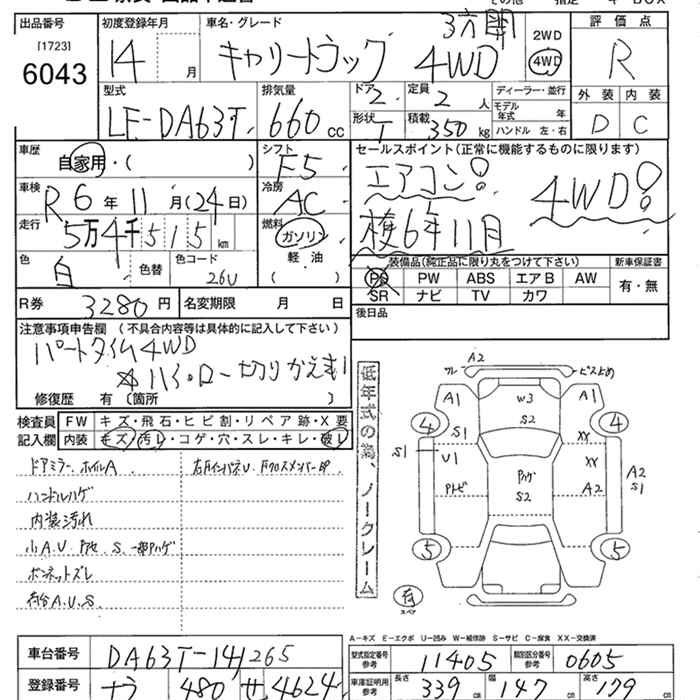 出品番号 初度登録年月 車名・グレード 2WD 評価点
[1723] 三方開 4WD
6043 14 月 キャリートラック 4WD R
型式 排気量 ドア 定員 ディーラー・並行 外装 内装
2 2 人 モデル年式 年
LE-DA63T 660 cc 形状 T 積載 350 kg ハンドル 左・右 D C
車歴 シフト セールスポイント(正常に機能するものに限ります)
自家用・( ) F5 エアコン!
車検 冷房 4WD!
R6年11月(24日) AC 検6年11月
走行 燃料
5万4千515km ガソリン
色 色替 色コード 軽油 装備品(純正品に限り丸をつけて下さい) 新車保証書
白 26U ( ) PS PW ABS エアB AW 有・無
SR ナビ TV カワ
R券 3280円 名変期限 月 日 後日品
注意事項申告欄 (不具合内容等は具体的に記入して下さい)
パートタイム4WD
ハイ・ロー切りかえ
修復歴 有(箇所 )
低年式の為、ノークレーム
検査員 FW キズ・飛石・ヒビ割・リペア跡・X要
記入欄 内装 キズ・汚レ・コゲ・穴・スレ・キレ・破レ
ドアミラー.ホイルA
ハンドルハゲ
内装汚れ
ボンネットズレ
各台A.U.S
A2
A1 W3 A1
4 S2 4
S1 XX
S1 U1 XX A2
S2 A2 S1
5 5
有
スペア
A-キズ E-エクボ U-凹み W-補修跡 S-サビ C-腐食 XX-交換済
車台番号 DA63T-141265 型式指定番号 参考 11405 類別区分番号 参考 0605
登録番号 480 せ 4624 車庫証明用 参考 長さ 339 cm 幅 147 cm 高さ 179 cm